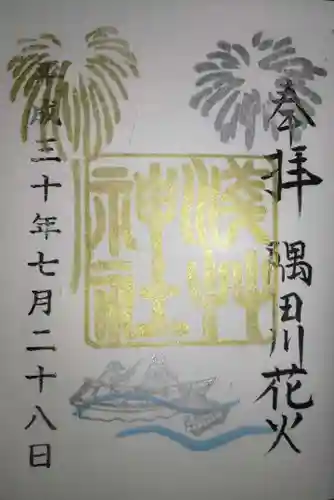 奉拝 隅田川花火
淺艸
神社
平成三十年七月二十八日